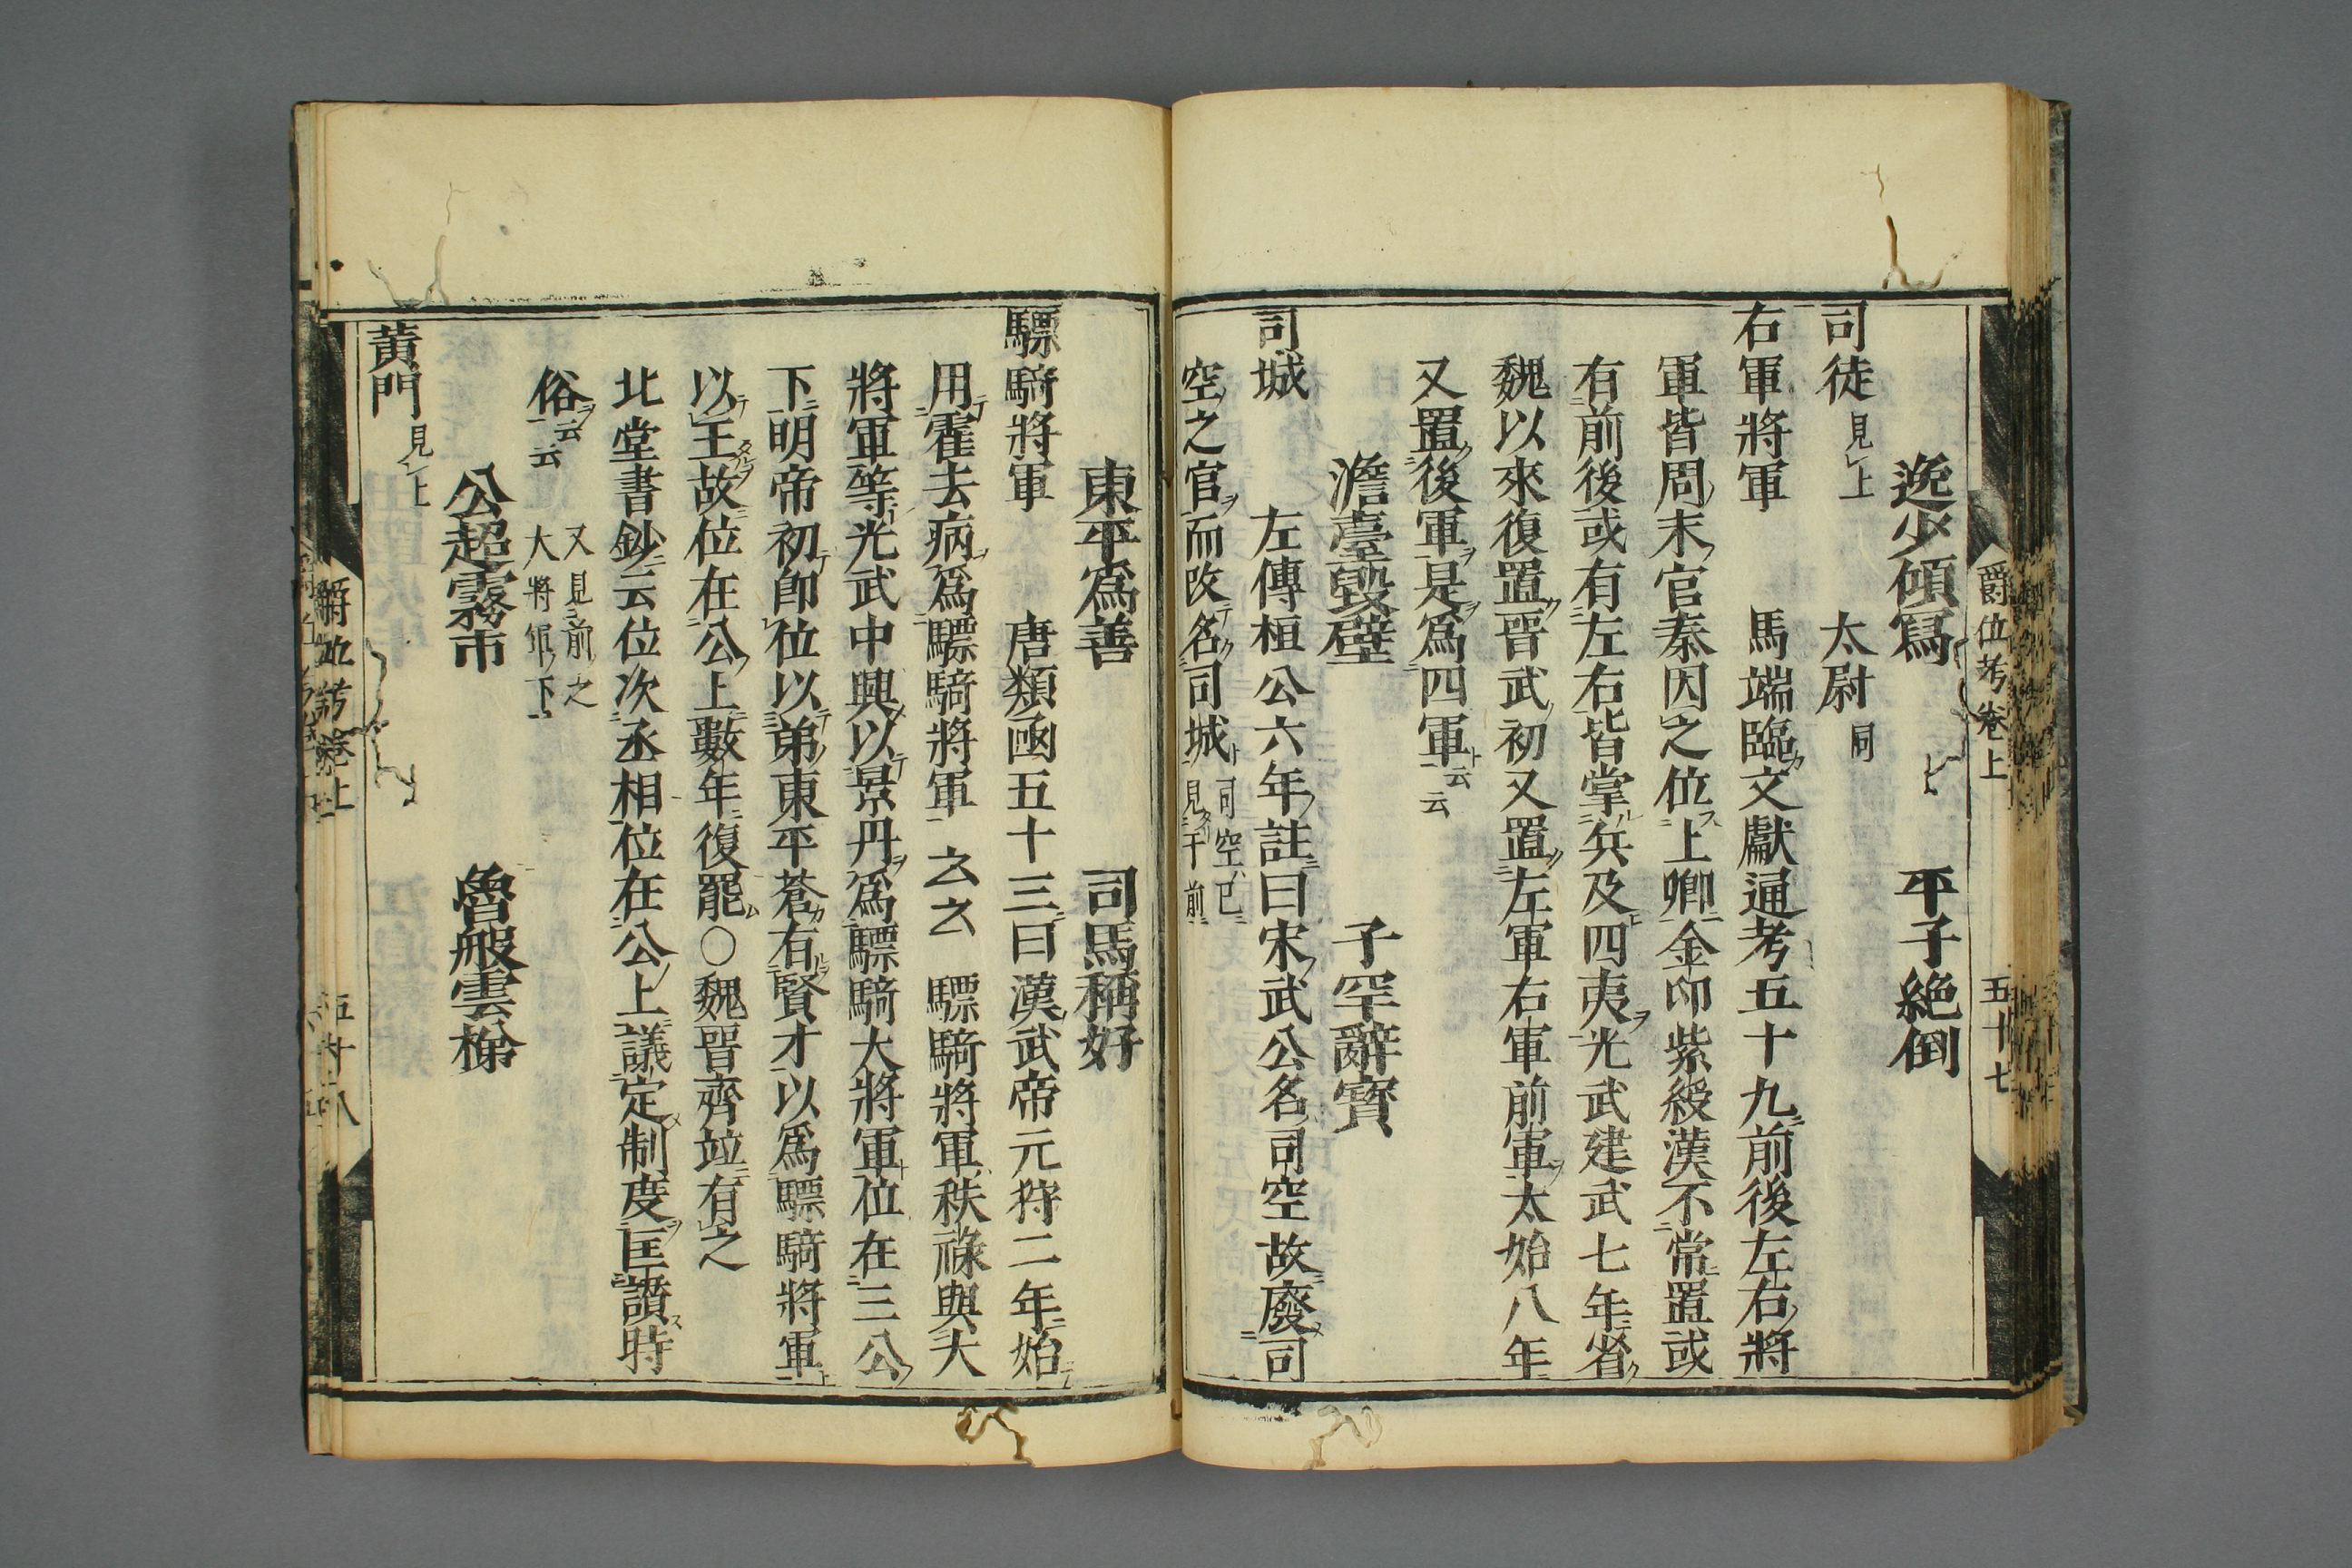 爵位考卷上　五十七
逸少傾寫　平子絶倒
司徒見上　太尉同
右軍將軍　馬端臨文獻通考五十九前後左右將
軍皆周末官秦因之位上卿金印紫綬漢不常置或
有前後或有左右皆掌兵及四夷光武建武七年省
魏以來復置晉武初又置左軍右軍前軍太始八年
又置後軍是爲四軍云云
澹臺毀璧　子罕辭寶
司城　左傳桓公六年註曰宋武公名司空故廢司
空之官而改名司城司空已見于前
東平爲善　司馬稱好
驃騎將軍　唐類凾五十三曰漢武帝元狩二年始
用霍去病爲驃騎將軍云云驃騎將軍秩祿與大
將軍等光武中興以景丹爲驃騎大將軍位在三公
下明帝初卽位以弟東平蒼有賢才以爲驃騎將軍
以王故位在公上數年復罷○魏晉齊竝有之
北堂書鈔云位次丞相位在公上議定制度匡讚時
俗云云又見前之大將軍下
公超霧市　魯般雲梯
黃門見上
爵位考卷上　五十八